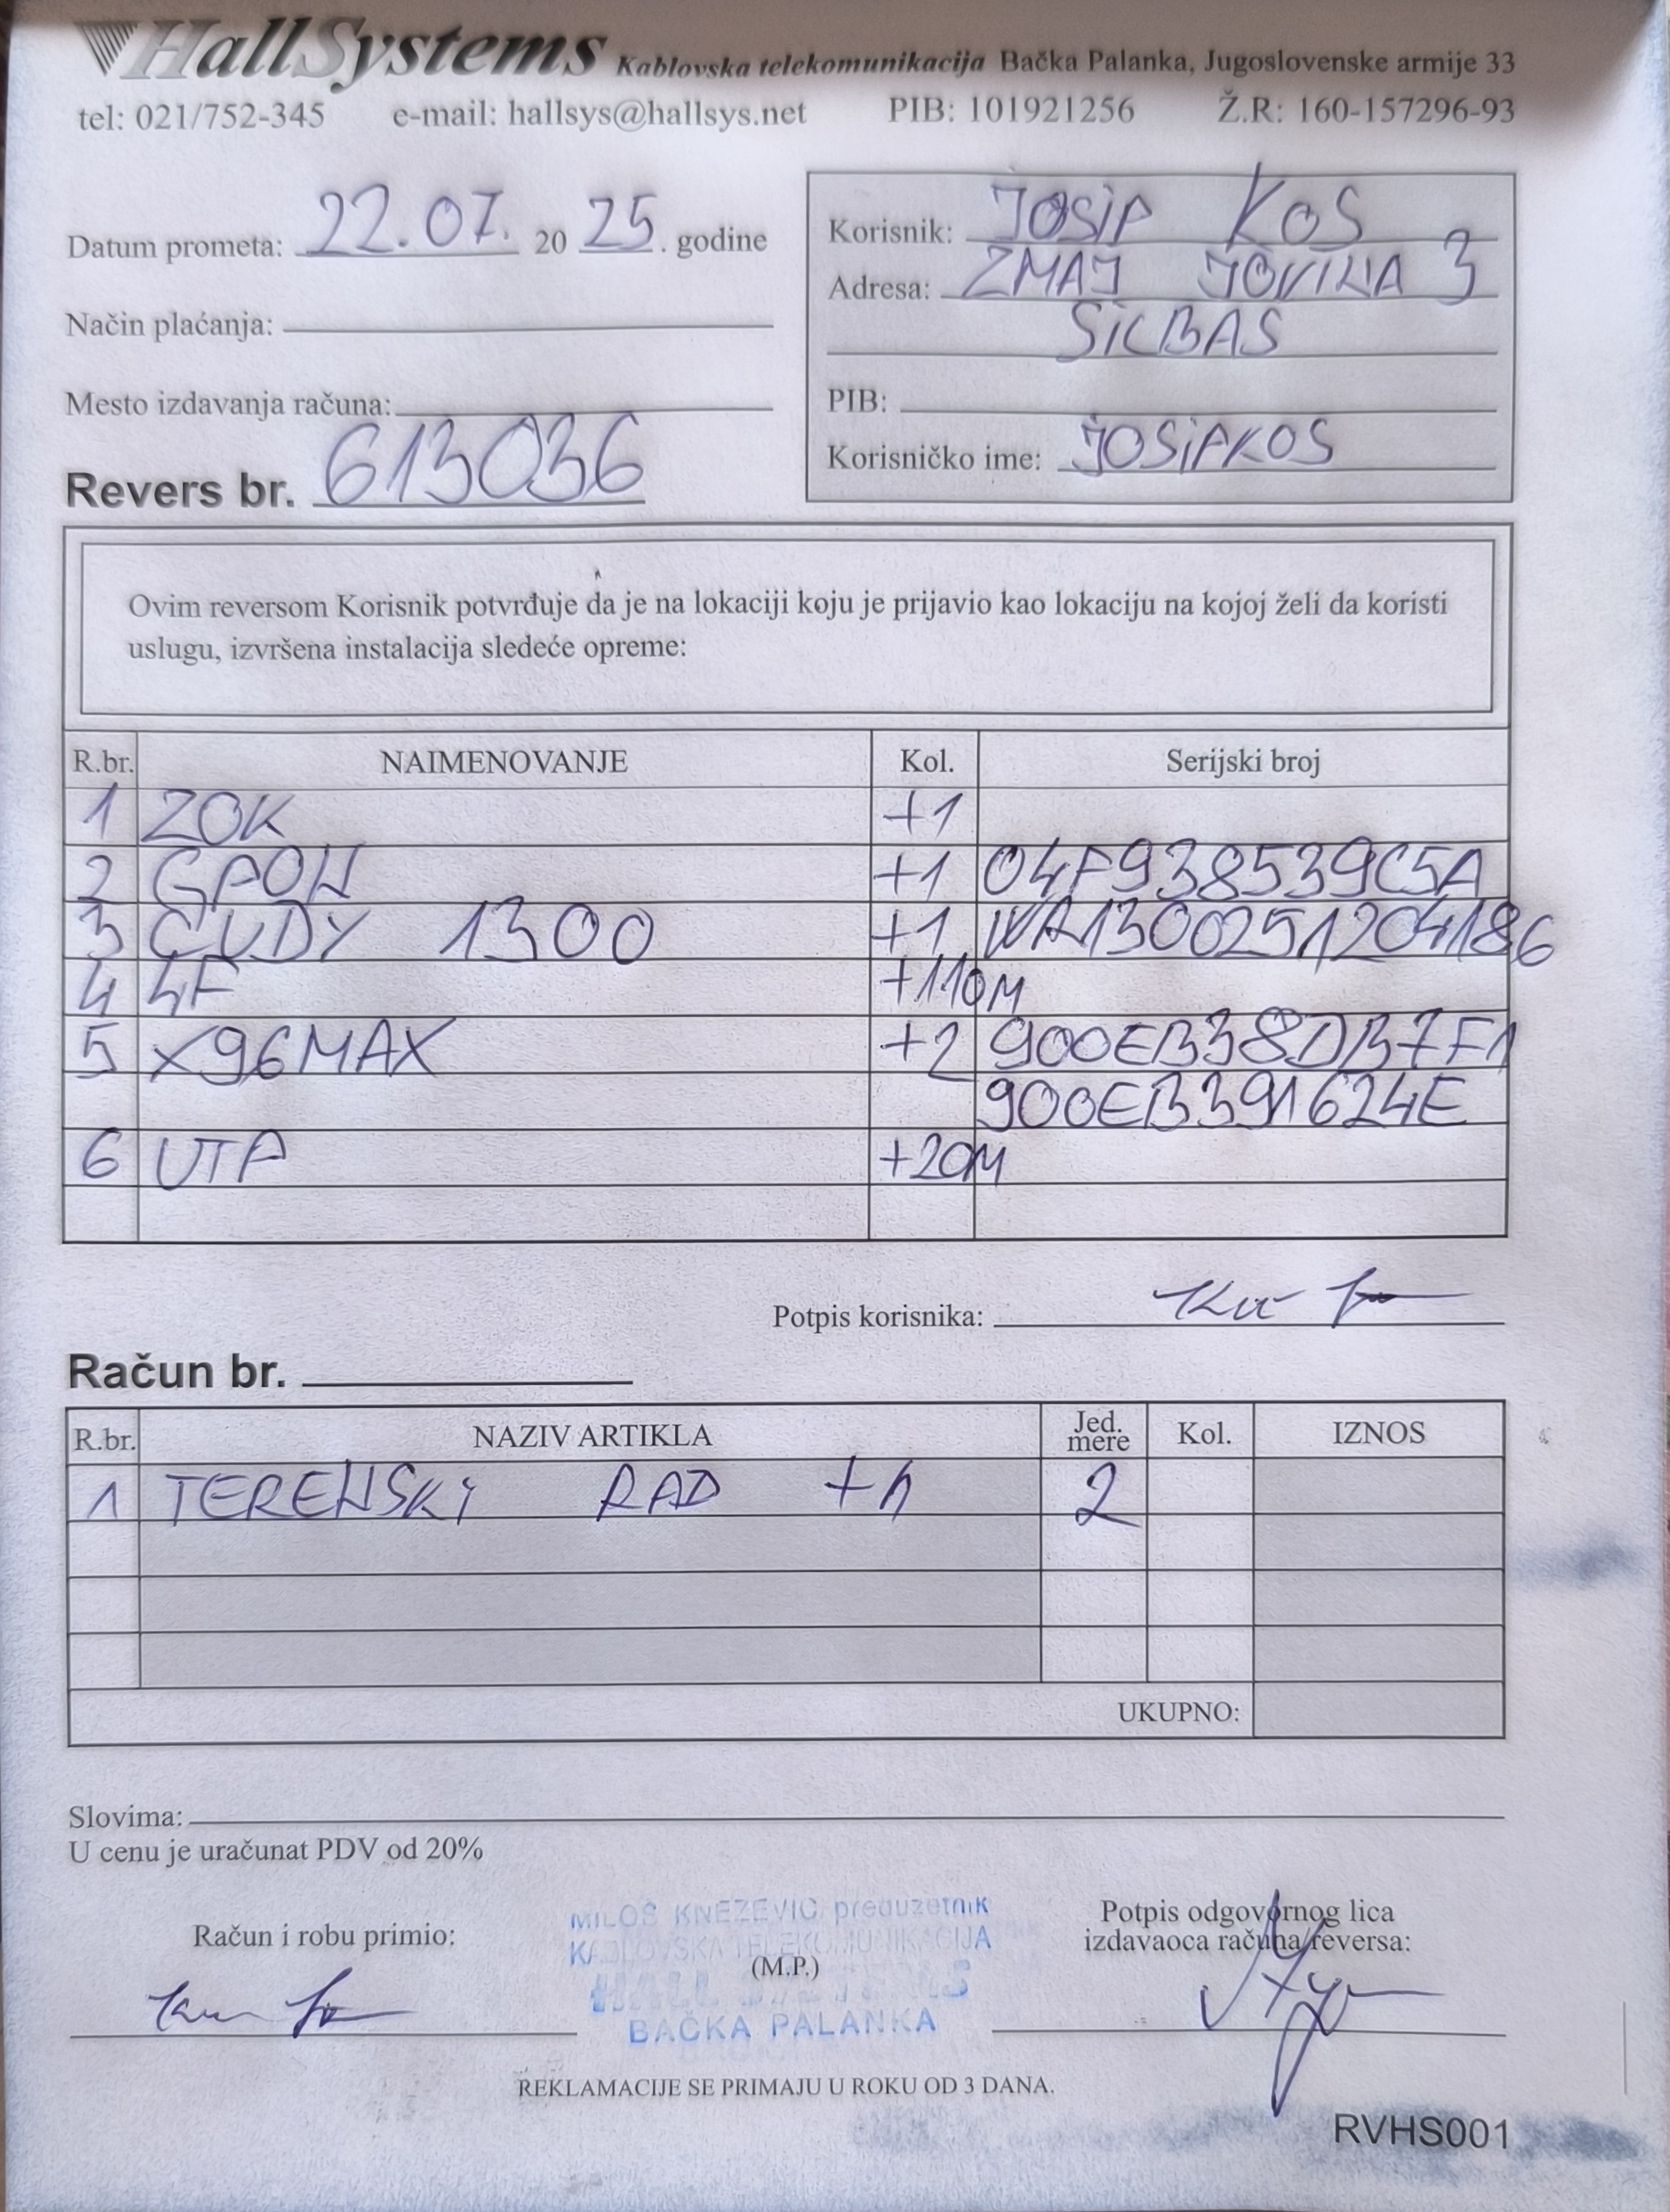 HallSystems Kablovska telekomunikacija Bačka Palanka, Jugoslovenske armije 33
tel: 021/752-345 e-mail: hallsys@hallsys.net PIB: 101921256 Ž.R: 160-157296-93
Datum prometa: 22.07. 20 25. godine
Način plaćanja:
Mesto izdavanja računa:
Revers br. 613036
Korisnik: JOSIP KOS
Adresa: ZMAJ JOVINA 3
SILBAS
PIB:
Korisničko ime: JOSIPKOS
Ovim reversom Korisnik potvrđuje da je na lokaciji koju je prijavio kao lokaciju na kojoj želi da koristi
uslugu, izvršena instalacija sledeće opreme:
R.br. NAIMENOVANJE Kol. Serijski broj
1 ZOK +1
2 GPON +1 04F938539C5A
3 CUDY 1300 +1 WR1300251204186
4 4F +110M
5 X96MAX +2 900EB38DB7F1
900EB391624E
6 UTP +20M
Potpis korisnika:
Račun br.
R.br. NAZIV ARTIKLA Jed. mere Kol. IZNOS
1 TERENSKI RAD +h 2
UKUPNO:
Slovima:
U cenu je uračunat PDV od 20%
Račun i robu primio:
MILOŠ KNEŽEVIĆ preduzetnik
KABLOVSKA TELEKOMUNIKACIJA
(M.P.)
HALL SYSTEMS
BAČKA PALANKA
Potpis odgovornog lica
izdavaoca računa/reversa:
REKLAMACIJE SE PRIMAJU U ROKU OD 3 DANA.
RVHS001